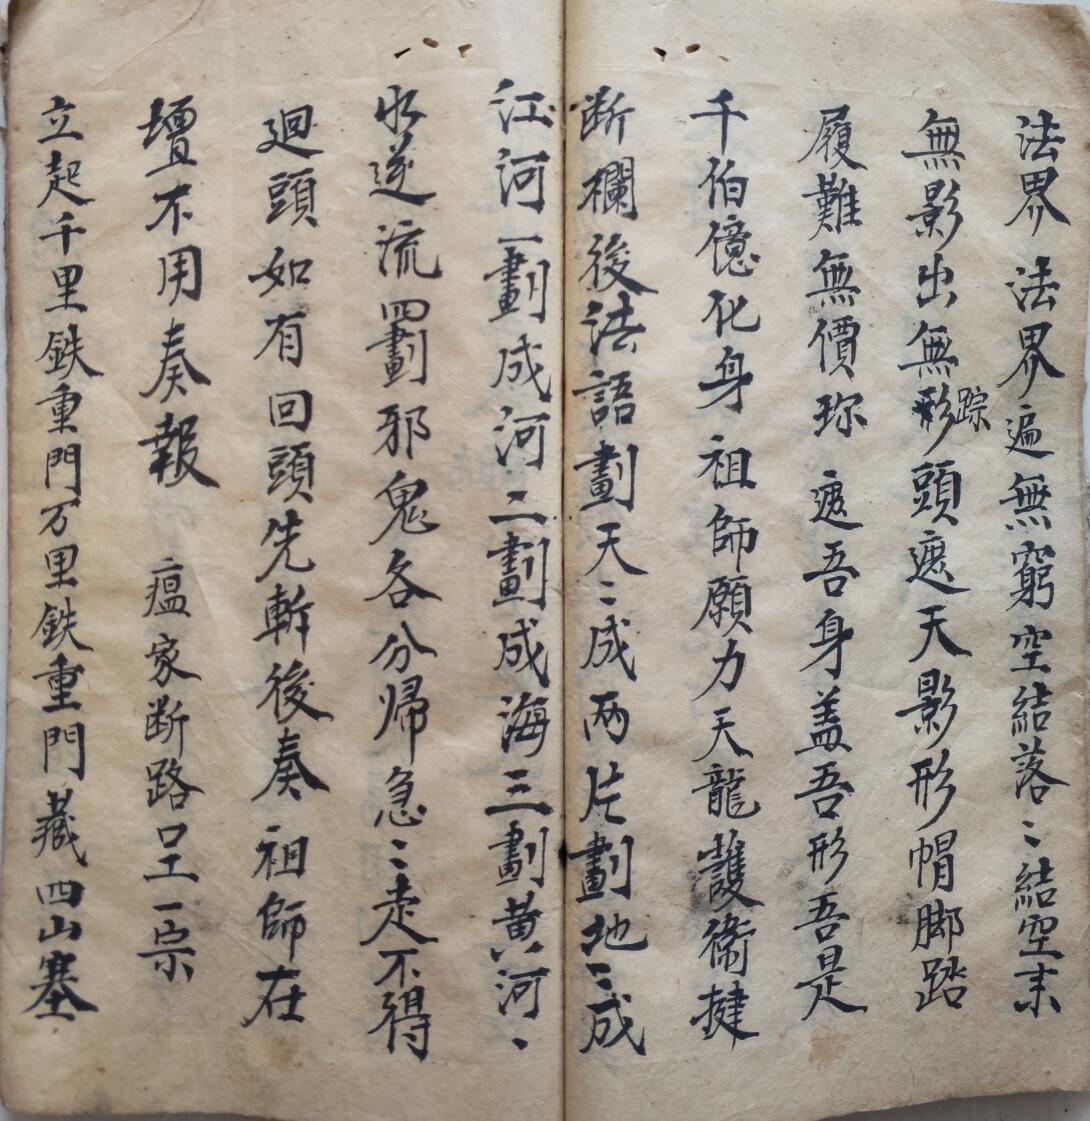 法界法界遍無窮空結落〻結空末
無影出無形踪頭遮天影形帽脚踏
履難無價珎遮吾身盖吾形吾是
千伯億化身祖師願力天龍護衛揵
断欄後法語劃天〻成两片劃地〻成
江河一劃成河二劃成海三劃黄河〻
水逆流四劃邪鬼各分帰急〻走不得
迴頭如有回頭先斬後奏祖師在
壇不用奏報 瘟家断路呈一宗
立起千里鉄重門万里鉄重門藏四山塞